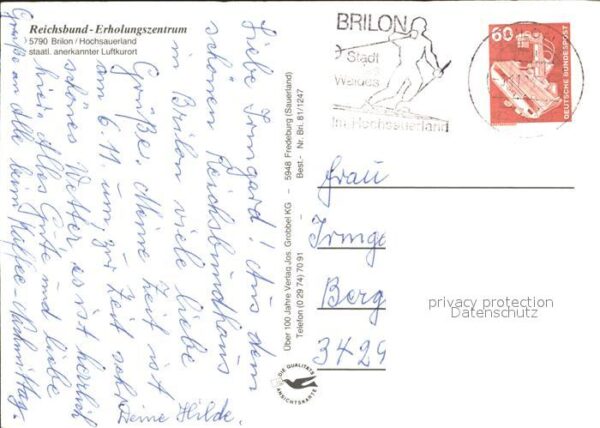 Reichsbund - Erholungszentrum
5790 Brilon / Hochsauerland
staatl. anerkannter Luftkurort
Liebe Irmgard! Aus dem
schönen Reichsbundhaus
in Brilon viele liebe
Grüße. Meine Zeit ist
am 6.11. um, zur Zeit sehr
schönes Wetter, es ist herrlich
hier. Alles Gute und liebe
Grüße an Alle beim Kaffee-Nachmittag.
Deine Hilde.
Über 100 Jahre Verlag Jos. Grobbel KG — 5948 Fredeburg (Sauerland)
Telefon (0 29 74) 70 91 Best.- Nr. Bri. 81/1247
DIE QUALITÄTS
ANSICHTSKARTE
BRILON
Stadt
Waldes
Im Hochsauerland
60
DEUTSCHE BUNDESPOST
Frau
Irmga
Berg
3429
privacy protection
Datenschutz